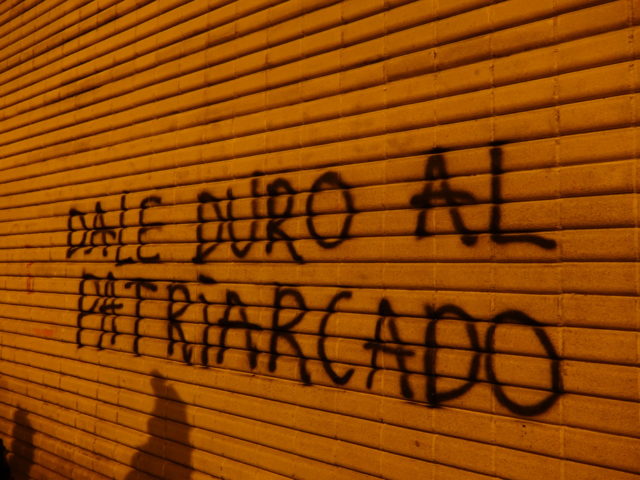 DALE DURO AL
PATRIARCADO